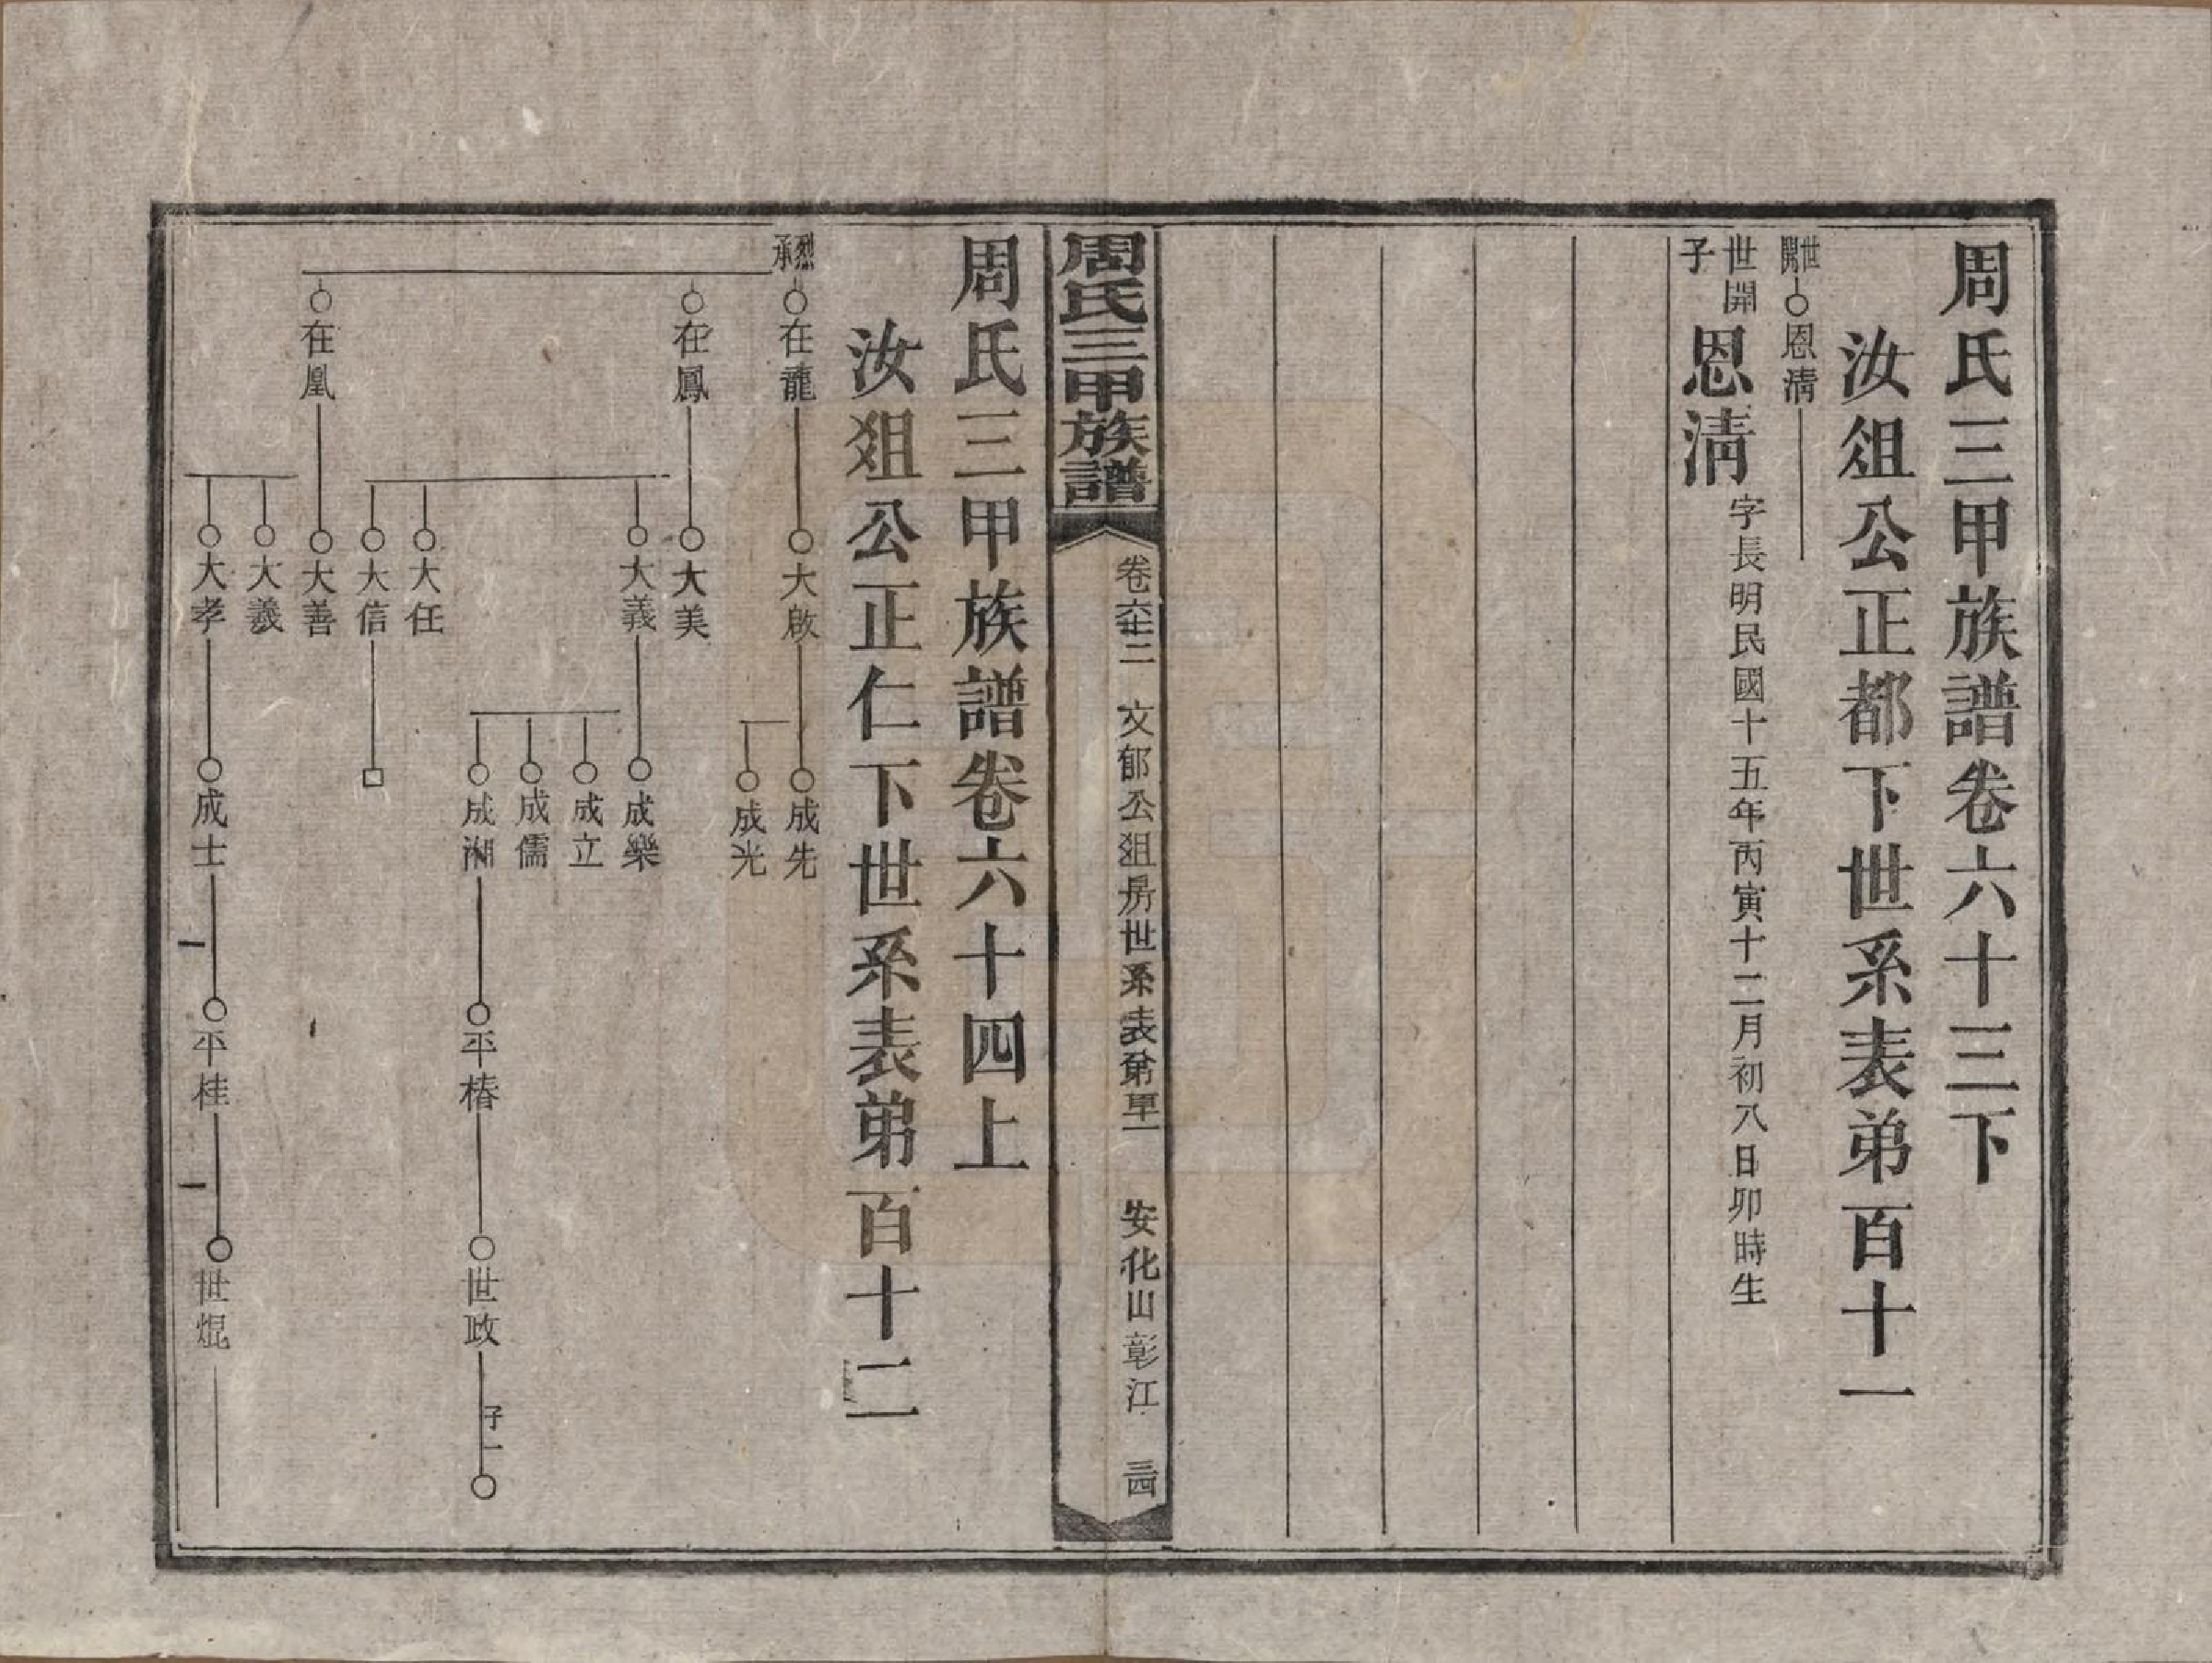 周氏三甲族譜卷六十三下
汝俎公正都下世系表弟百十一
世開
恩淸
世開子
恩淸
字長明民國十五年丙寅十二月初八日卯時生
周氏三甲族譜
卷六十二
文郁公俎房世系表第
安化山彰江
三四
周氏三甲族譜卷六十四上
汝俎公正仁下世系表弟百十二
烈承
在龍
大啟
成先
成光
在鳳
大美
大義
成樂
成立
成儒
成湘
平椿
世政
子一
大任
大信
在凰
大善
大義
大孝
成士
平桂
世焜